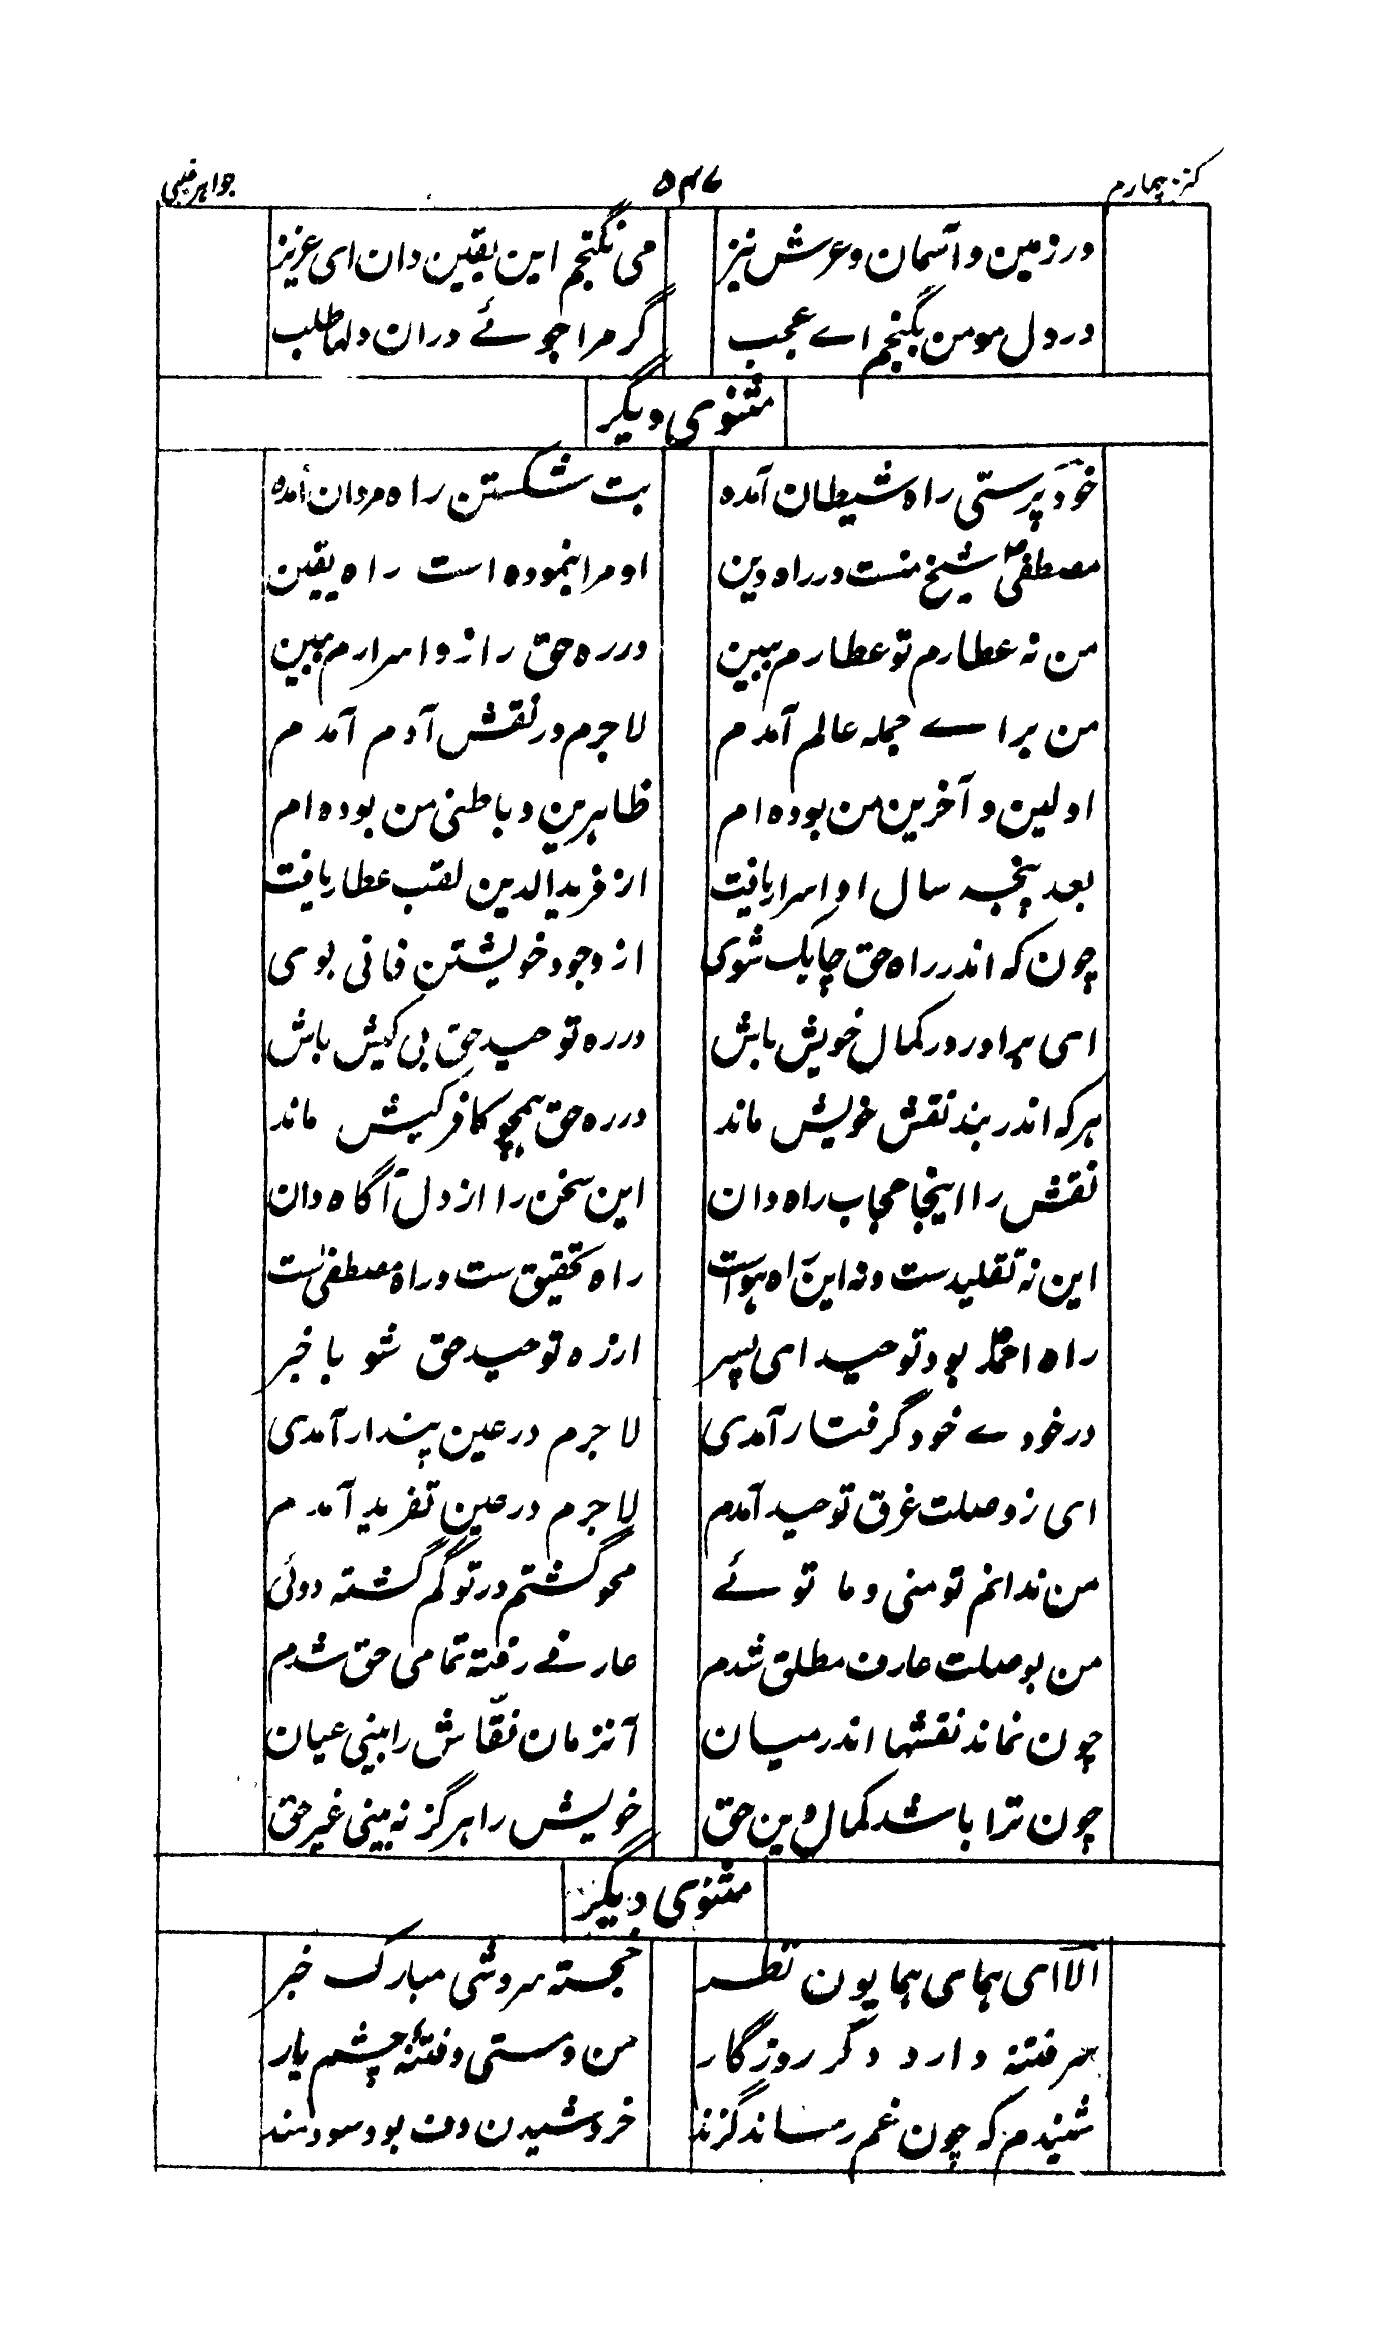 کنز چهارم ۵۴۷ جواهر غیبی
در زمین و آسمان و عرش نیز می نگنجم این یقین دان ای عزیز
در دل مومن بگنجم اے عجب گر مرا جوئے دران دلها طلب
مثنوی دیگر
خود پرستی راه شیطان آمده بت شکستن راه مردان آمده
مصطفیؐ شیخ منست در راه دین او مرا بنموده است راه یقین
من نه عطارم تو عطارم مبین در ره حق راز و اسرارم ببین
من براے جمله عالم آمدم لاجرم در نقش آدم آمدم
اولین و آخرین من بوده ام ظاهرین و باطنی من بوده ام
بعد پنجه سال او اسرار یافت از فرید الدین لقب عطار یافت
چون که اندر راه حق چابک شوی از وجود خویشتن فانی بوی
ای برادر در کمال خویش باش در ره توحید حق بی کیش باش
هر که اندر بند نقش خویش ماند در ره حق همچو کافر کیش ماند
نقش را اینجا حجاب راه دان این سخن را از دل آگاه دان
این نه تقلیدست و نه این راه هواست راه تحقیق ست و راه مصطفیٰ ست
راه احمدؐ بود توحید ای پسر از ره توحید حق شو با خبر
در خودے خود گرفتار آمدی لاجرم در عین پندار آمدی
ای ز وصلت غرق توحید آمدم لاجرم در عین تفرید آمدم
من ندانم تو منی و ما توئے محو گشتم در تو گم گشته دوئی
من بوصلت عارف مطلق شدم عارفے رفته تمامی حق شدم
چون نماند نقشها اندر میان آنزمان نقّاش را بینی عیان
چون ترا باشد کمال دین حق خویش را هرگز نه بینی غیر حق
مثنوی دیگر
الا ای همای همایون نظر خجسته سروشی مبارک خبر
سر فتنه دارد دگر روزگار من و مستی و فتنهٔ چشم یار
شنیدم که چون غم رساند گزند خروشیدن دف بود سودمند